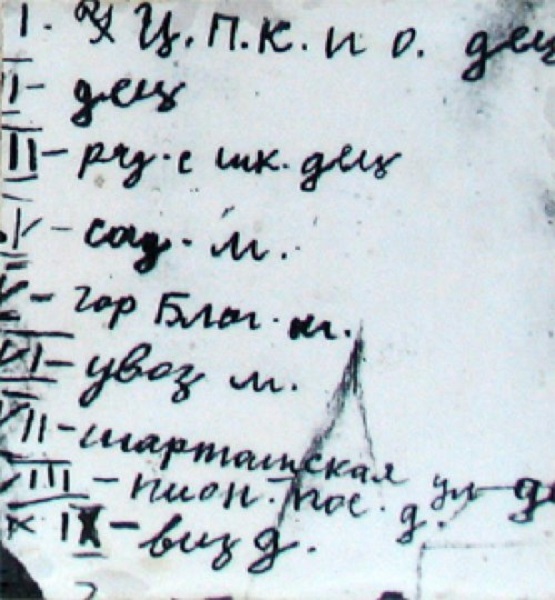 1. Ц. П. К. и О. дец
I - дец
II - ряд. с шк. дец
V - сад. м.
V - гор Благ. м.
VI - увоз м.
VII - шарташская ул - д
VIII - пион. пос. д.
IX - виз д.